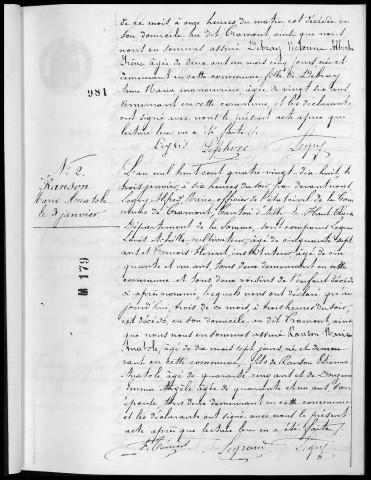 de ce mois à onze heures du matin, est décédée en
son domicile au dit Cramont ainsi que nous
nous en sommes assuré Debray Victorine Albertine
Irène âgée de deux ans un mois cinq jours née et
demeurant en cette commune, fille de Debray
Anne Marie manouvrière, âgée de vingt six ans
demeurant en cette commune et les déclarants
ont signé avec nous le présent acte après que
lecture leur en a été faite.
981
N° 2.
Ranson
Marie Anatole
le 3 janvier.
M 179
L'an mil huit cent quatre-vingt-dix huit le
trois janvier, à six heures du soir, par devant nous
Alfred Marie, officier de l'état civil de la Com
mune de Cramont, Canton d'Ailly le Haut Clocher
Département de la Somme, sont comparus Legrand
Louis Achille, cultivateur, âgé de cinquante sept
ans et instituteur, âgé de cin
quante et un ans, tous deux demeurant en cette
commune et tous deux voisins de l'enfant décédé
ci après nommé, lesquels nous ont déclaré que au
jourd'hui, trois de ce mois à trois heures du soir,
est décédé, en son domicile, au dit Cramont ainsi
que nous nous en sommes assuré Ranson Marie
Anatole, âgé de dix mois sept jours, né et demeu
rant en cette commune, fils de Ranson Etienne
Anatole, âgé de quarante cinq ans et de
Emma âgée de quarante et un ans son
épouse tous deux demeurant en cette commune
et les déclarants ont signé avec nous le présent
acte après que lecture leur en a été faite.
Legrand